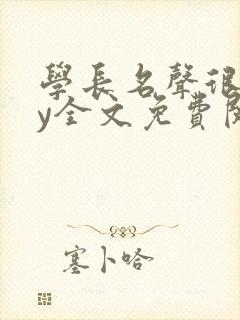 學長名聲很
y全文免費閱
塞卜哈